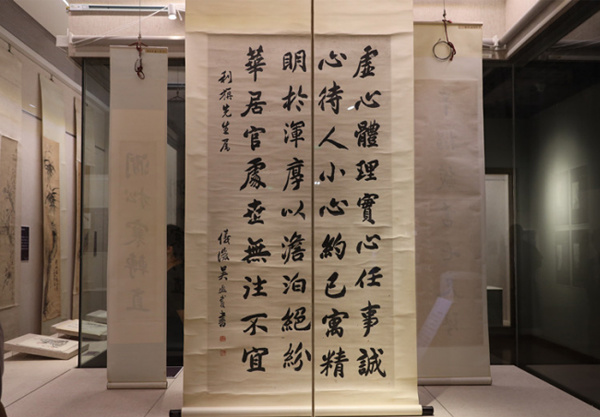 虛心體理實心任事誠
心待人小心約己寓精
明於渾厚以澹泊絕紛
華居官處世無往不宜
先生屬
儀徵吳 書